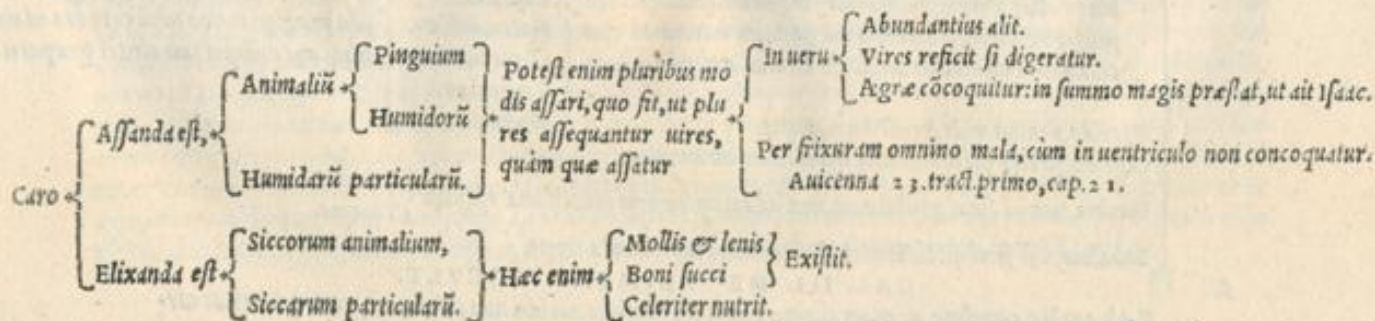 Caro
Aſſanda eſt,
Animaliũ
Pinguium
Humidorũ
Humidarũ particularũ.
Poteſt enim pluribus mo
dis aſſari, quo fit, ut plu
res aſſequantur uires,
quàm quæ aſſatur
In ueru
Abundantius alit.
Vires reficit ſi digeratur.
Aegræ cõcoquitur: in ſummo magis præſtat, ut ait Iſaac.
Per frixuram omnino mala, cùm in uentriculo non concoquatur.
Auicenna 23. tract. primo, cap. 21.
Elixanda eſt
Siccorum animalium,
Siccarum particularũ.
Hæc enim
Mollis & lenis
Boni ſucci
Exiſtit.
Celeriter nutrit.